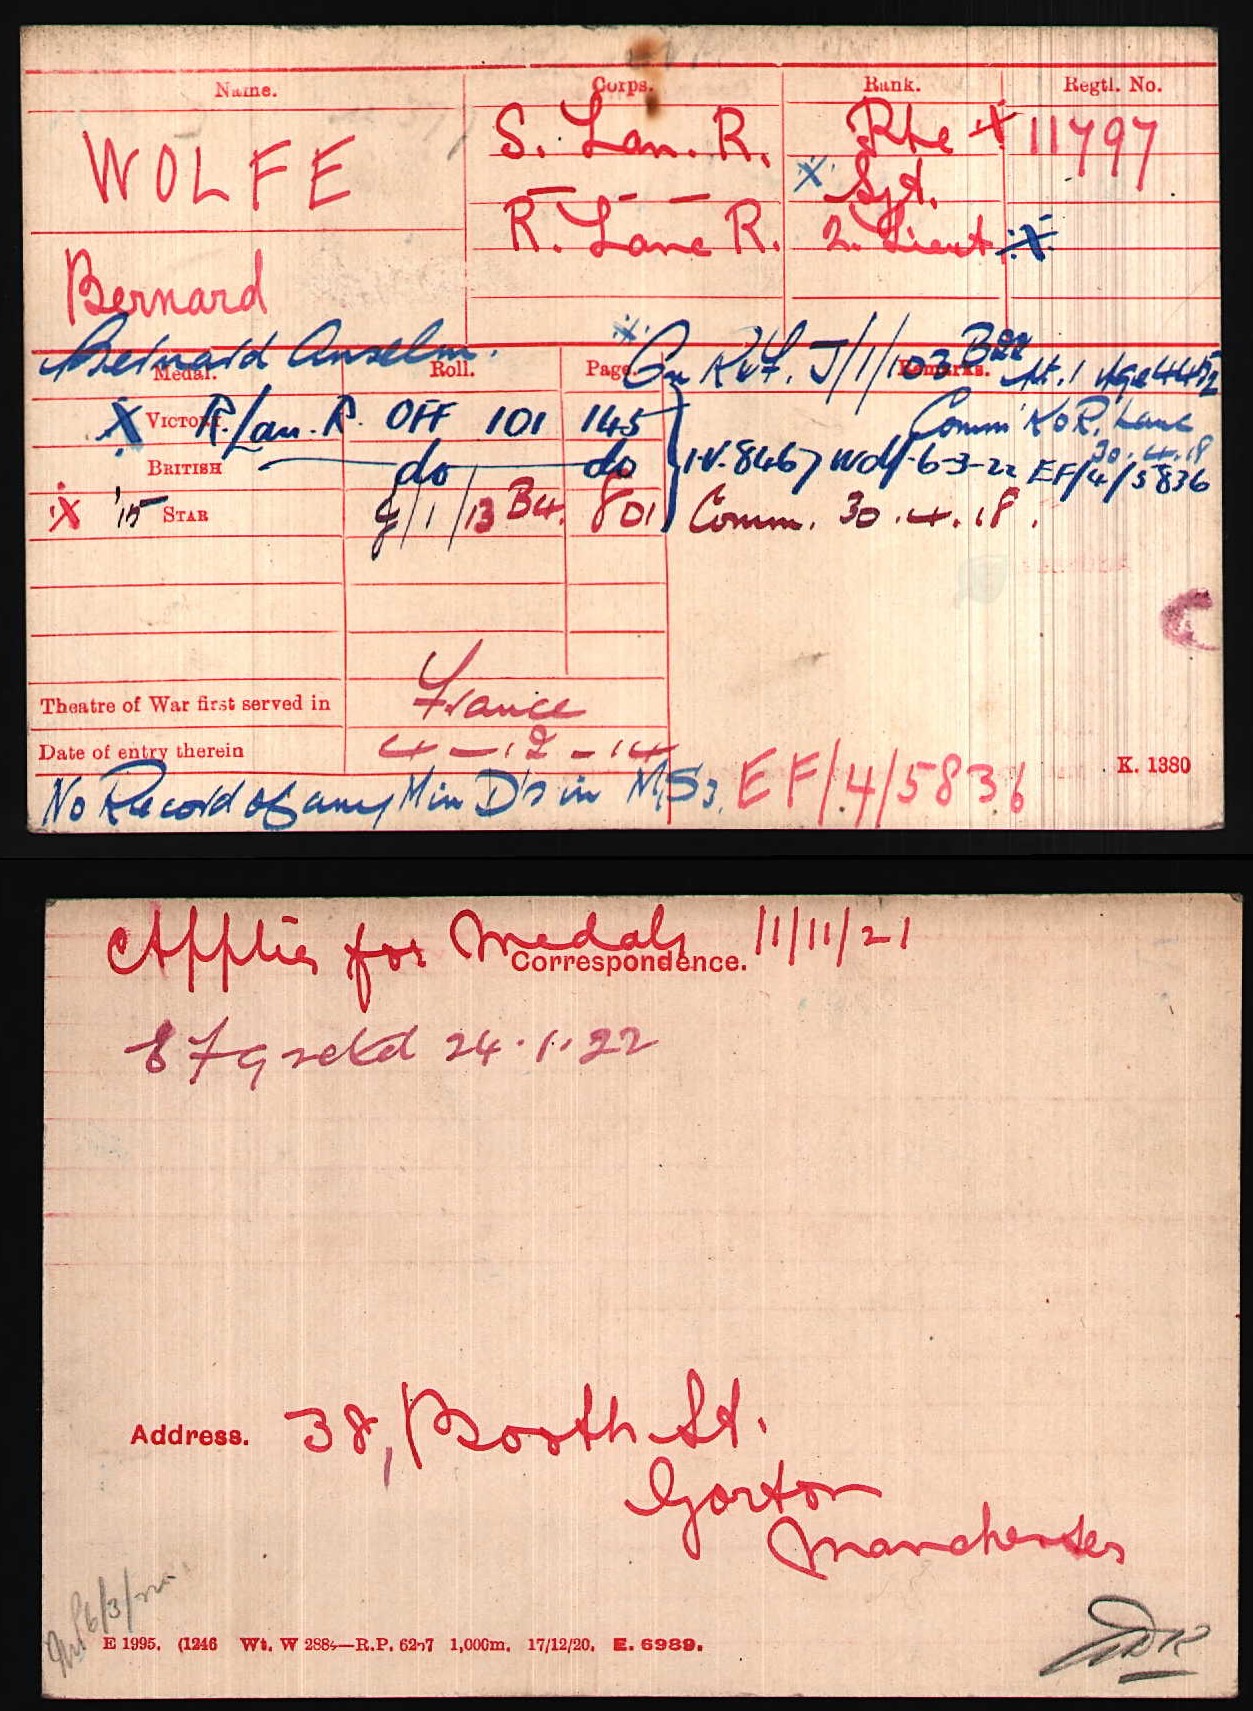 Name. Corps. Rank. Regtl. No.
WOLFE S. Lan. R. Pte X 11797
X Sgt.
Bernard R. Lanc R. 2. Lieut. X
Bernard Anselm. On KuF. J/1/103 B22
Medal. Roll. Page. Remarks.
X VICTORY R. Lan. R. OFF 101 145 Comm' KoR. Lanc
30.4.18
BRITISH do do I.V. 8467 6-3-22 EF/4/5836
X '15 STAR J/1/13 B4. 801 Comm. 30.4.18.
Theatre of War first served in France
Date of entry therein 4-12-14
K. 1380
No Record of any M in D's in MS3. EF/4/5836
Applies for Medals 11/11/21
Correspondence.
EF9 retd 24.1.22
Address. 38, Booth St.
Gorton
Manchester
6/3/22
E 1995. (1246 Wt. W 2884—R.P. 6207 1,000m. 17/12/20. E. 6989.